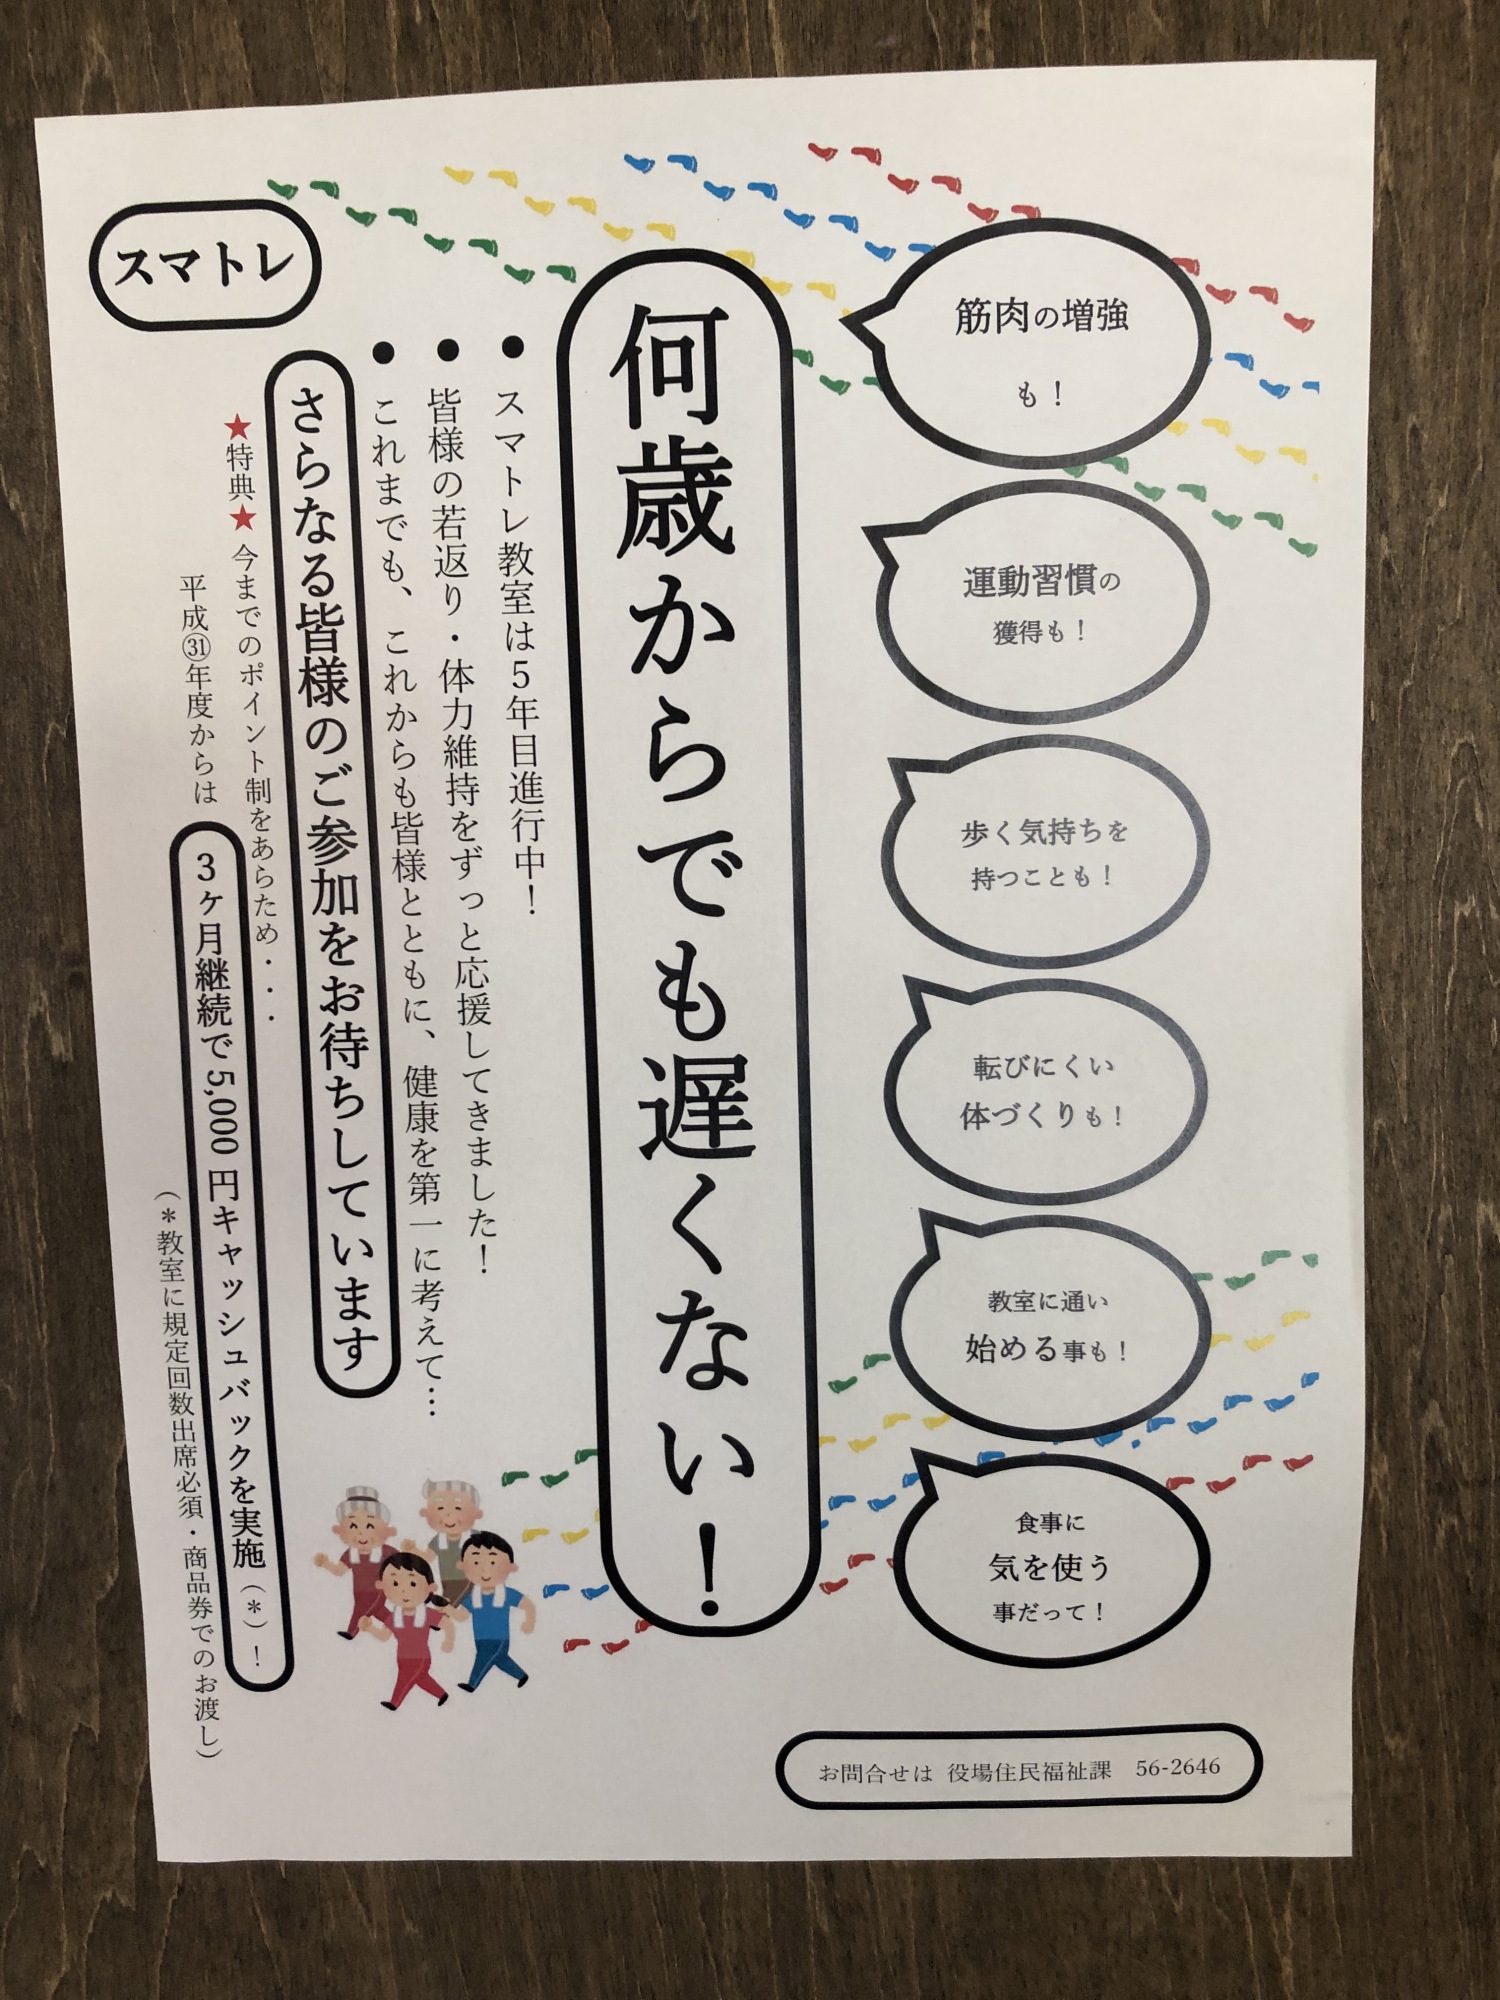 筋肉の増強
も！
運動習慣の
獲得も！
歩く気持ちを
持つことも！
転びにくい
体づくりも！
教室に通い
始める事も！
食事に
気を使う
事だって！
何歳からでも遅くない！
●スマトレ教室は5年目進行中！
●皆様の若返り・体力維持をずっと応援してきました！
●これまでも、これからも皆様とともに、健康を第一に考えて…
さらなる皆様のご参加をお待ちしています
★特典★ 今までのポイント制をあらため・・・
平成㉛年度からは
3ヶ月継続で5,000円キャッシュバックを実施（＊）！
（＊教室に規定回数出席必須・商品券でのお渡し）
スマトレ
お問合せは 役場住民福祉課 56-2646